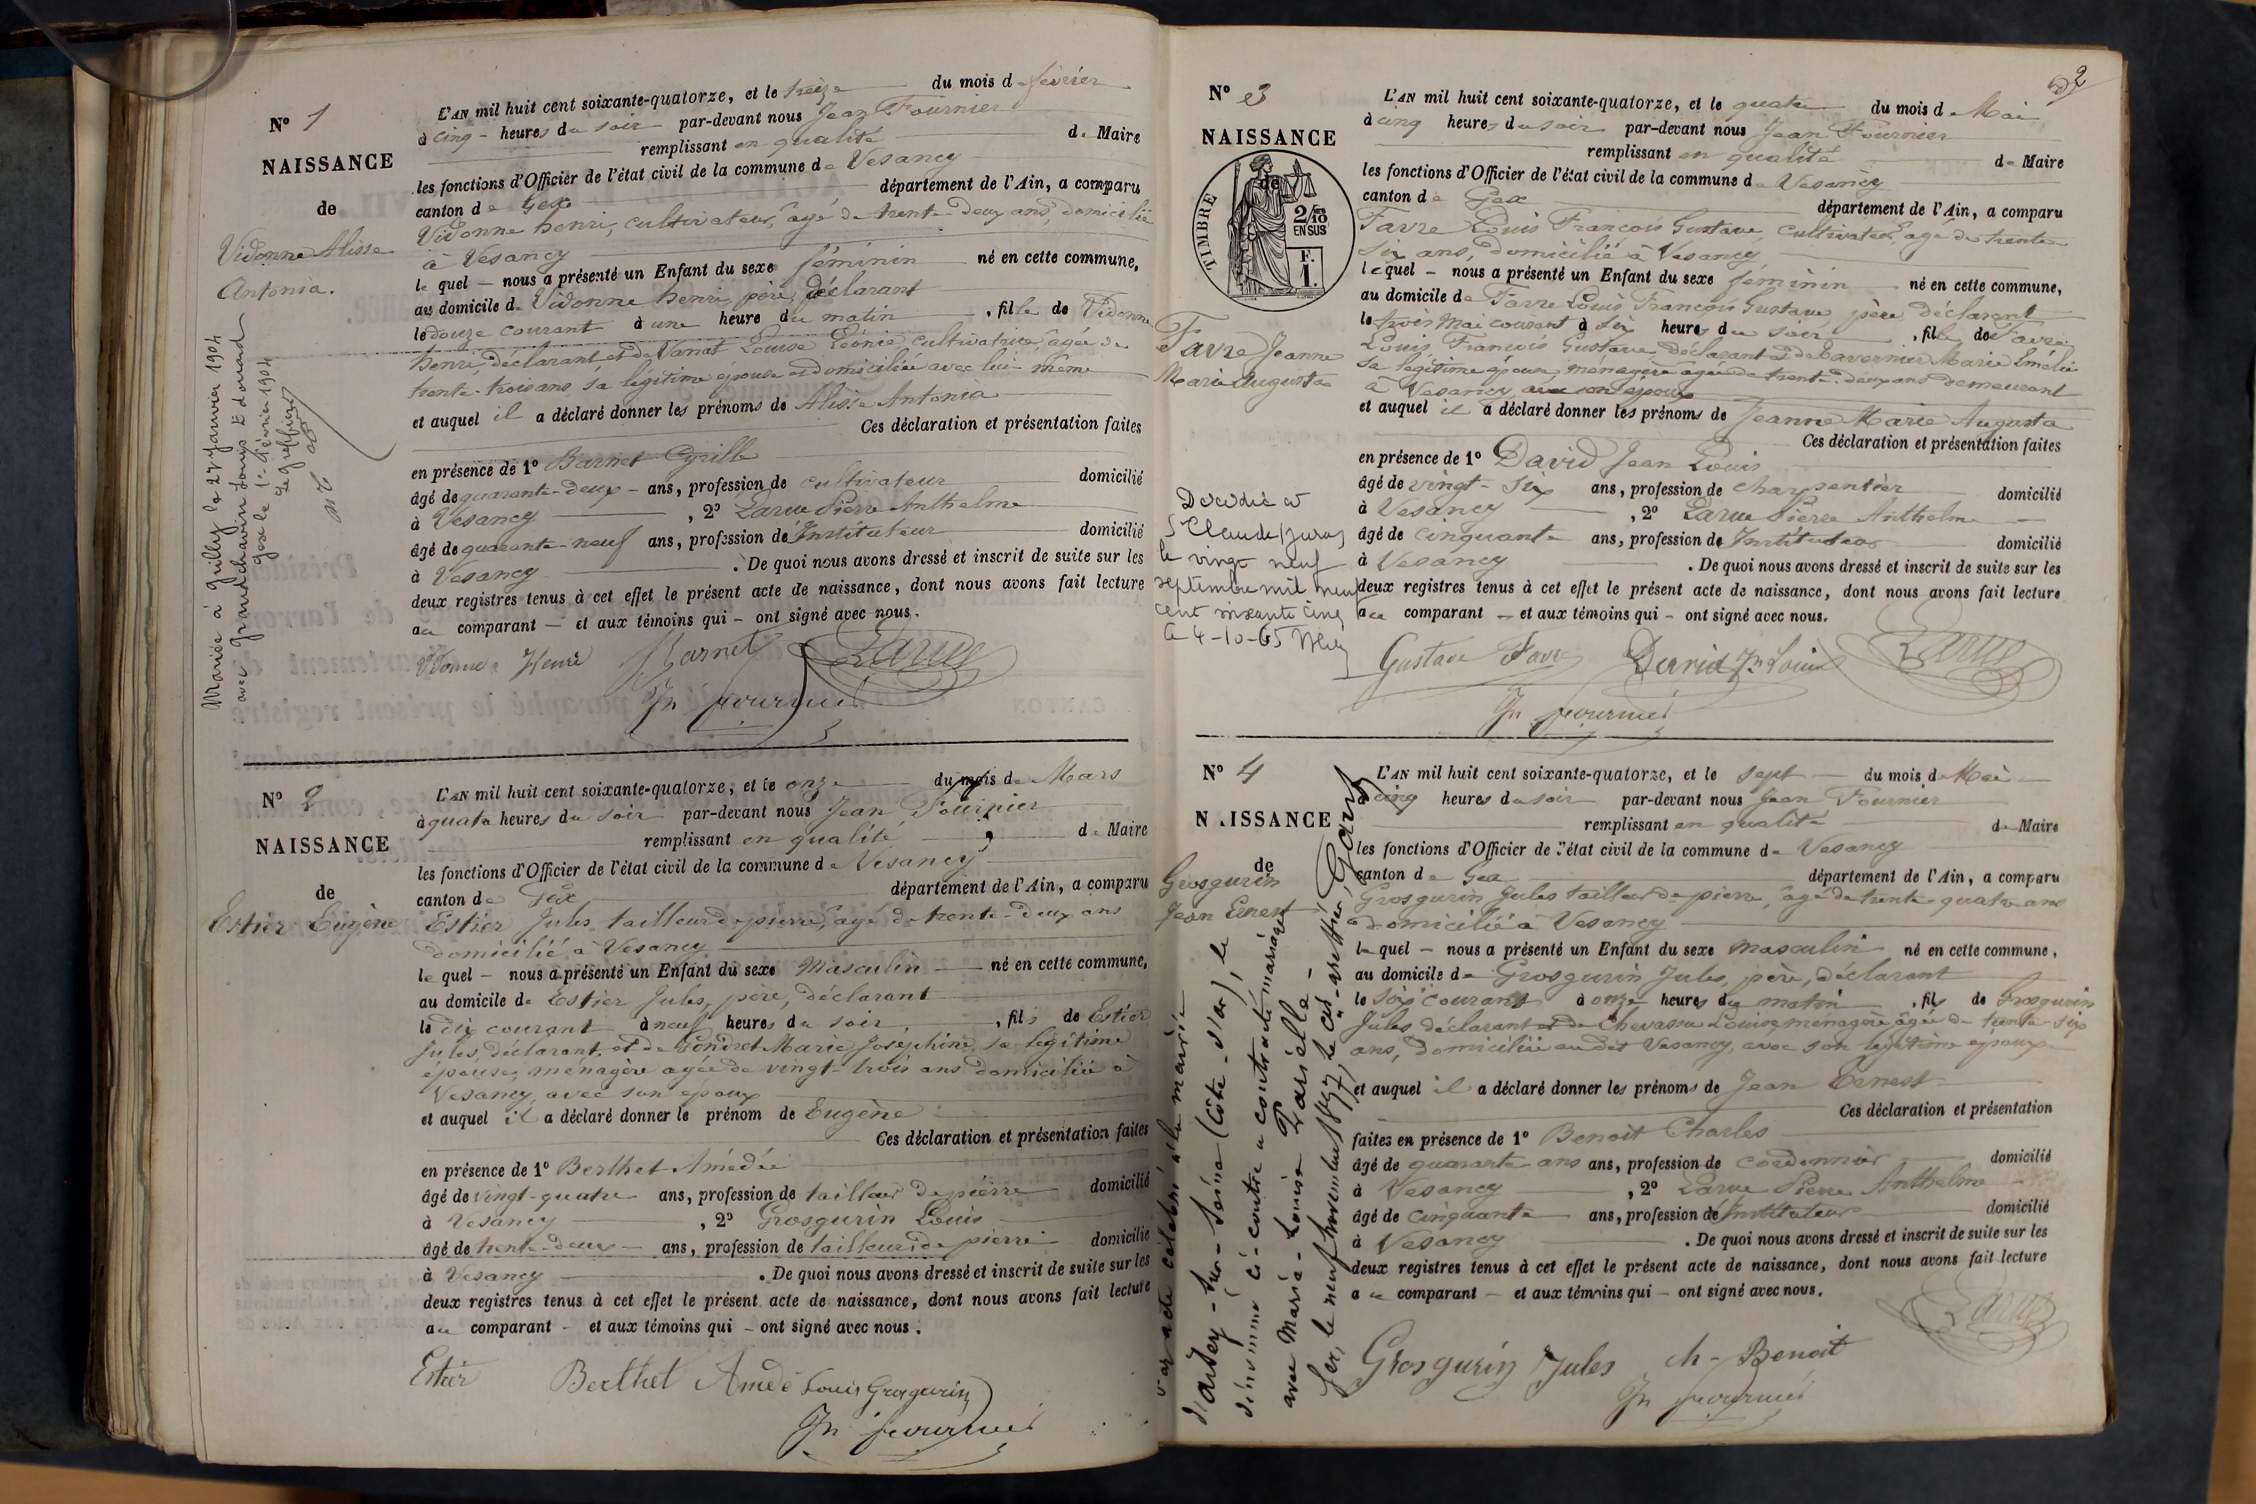 Nº 1
NAISSANCE
de
Vidonne Alisse
Antonia.
Mariée à Grilly le 27 Janvier 1904
avec Grandchavin Louis Edouard
Gex le 1er février 1904
Le greffier
L'AN mil huit cent soixante-quatorze, et le treize du mois de février
à cinq heures du soir par-devant nous Jean Fournier
remplissant en qualité de Maire
les fonctions d'Officier de l'état civil de la commune de Vesancy
canton de Gex département de l'Ain, a comparu
Vidonne henri, cultivateur, âgé de trente-deux ans, domicilié
à Vesancy
lequel nous a présenté un Enfant du sexe féminin né en cette commune,
au domicile de Vidonne henri, père, déclarant
le douze courant à une heure du matin, fille de Vidonne
henri, déclarant et de Vanat Louise Léonie, cultivatrice, âgée de
trente-trois ans sa légitime épouse domiciliée avec lui-même
et auquel il a déclaré donner les prénoms de Alisse Antonia
Ces déclaration et présentation faites
en présence de 1º Barnet Cyrille
âgé de quarante-deux ans, profession de cultivateur domicilié
à Vesancy, 2º Larue Pierre Anthelme
âgé de quarante-neuf ans, profession d'Instituteur domicilié
à Vesancy. De quoi nous avons dressé et inscrit de suite sur les
deux registres tenus à cet effet le présent acte de naissance, dont nous avons fait lecture
au comparant et aux témoins qui ont signé avec nous.
Vidonne Henri Barnet Larue
Jn fournier
Nº 2
NAISSANCE
de
Estier Eugène
L'AN mil huit cent soixante-quatorze, et le onze du mois de Mars
à quatre heures du soir par-devant nous Jean Fournier
remplissant en qualité de Maire
les fonctions d'Officier de l'état civil de la commune de Vesancy
canton de Gex département de l'Ain, a comparu
Estier Jules, tailleur de pierre, âgé de trente-deux ans
domicilié à Vesancy
lequel nous a présenté un Enfant du sexe Masculin né en cette commune,
au domicile de Estier Jules, père, déclarant
le dix courant à neuf heures du soir, fils de Estier
Jules, déclarant et de Marie Joséphine, sa légitime
épouse, ménagère âgée de vingt-trois ans domiciliée à
Vesancy, avec son époux
et auquel il a déclaré donner le prénom de Eugène
Ces déclaration et présentation faites
en présence de 1º Berthet Amédée
âgé de vingt-quatre ans, profession de tailleur de pierre domicilié
à Vesancy, 2º Grosgurin Louis
âgé de trente-deux ans, profession de tailleur de pierre domicilié
à Vesancy. De quoi nous avons dressé et inscrit de suite sur les
deux registres tenus à cet effet le présent acte de naissance, dont nous avons fait lecture
au comparant et aux témoins qui ont signé avec nous.
Estier Berthet Amedé Louis Grosgurin
Jn fournier
2
Nº 3
NAISSANCE
de
TIMBRE
2/10
EN SUS
F.
1.
Favre Jeanne
Marie Augusta
Décédée à
St Claude (Jura)
le vingt neuf
septembre mil neuf
cent soixante cinq
le 4-10-65
L'AN mil huit cent soixante-quatorze, et le quatre du mois de Mai
à cinq heures du soir par-devant nous Jean Fournier
remplissant en qualité de Maire
les fonctions d'Officier de l'état civil de la commune de Vesancy
canton de Gex département de l'Ain, a comparu
Favre Louis François Gustave, cultivateur, âgé de trente
six ans, domicilié à Vesancy,
lequel nous a présenté un Enfant du sexe féminin né en cette commune,
au domicile de Favre Louis François Gustave père déclarant
le trois Mai courant à six heures du soir, fille de Favre
Louis François Gustave, déclarant et de Tavernier Marie Emélie
sa légitime épouse, ménagère âgée de trente-deux ans demeurant
à Vesancy, avec son époux
et auquel il a déclaré donner les prénoms de Jeanne Marie Augusta
Ces déclaration et présentation faites
en présence de 1º David Jean Louis
âgé de vingt-six ans, profession de charpentier domicilié
à Vesancy, 2º Larue Pierre Anthelme
âgé de cinquante ans, profession d'Instituteur domicilié
à Vesancy. De quoi nous avons dressé et inscrit de suite sur les
deux registres tenus à cet effet le présent acte de naissance, dont nous avons fait lecture
au comparant et aux témoins qui ont signé avec nous.
Gustave Favre David Jn Louis Larue
Jn fournier
Nº 4
NAISSANCE
de
Grosgurin
Jean Ernest
Par acte célébré à la mairie
d'Aisey-sur-Seine (Côte-d'or), le
dénommé ci-contre a contracté mariage
avec Marie-Louise
Gex, le neuf novembre 1897, Le Gd-greffier,
L'AN mil huit cent soixante-quatorze, et le sept du mois de Mai
à cinq heures du soir par-devant nous Jean Fournier
remplissant en qualité de Maire
les fonctions d'Officier de l'état civil de la commune de Vesancy
canton de Gex département de l'Ain, a comparu
Grosgurin Jules tailleur de pierre, âgé de trente-quatre ans
domicilié à Vesancy
lequel nous a présenté un Enfant du sexe masculin né en cette commune,
au domicile de Grosgurin Jules, père, déclarant
le six courant à onze heures du matin, fils de Grosgurin
Jules déclarant et de Chevassu Louise ménagère âgée de trente-six
ans, domiciliée au dit Vesancy, avec son légitime époux
et auquel il a déclaré donner les prénoms de Jean Ernest
Ces déclaration et présentation
faites en présence de 1º Benoit Charles
âgé de quarante ans ans, profession de cordonnier domicilié
à Vesancy, 2º Larue Pierre Anthelme
âgé de cinquante ans, profession d'Instituteur domicilié
à Vesancy. De quoi nous avons dressé et inscrit de suite sur les
deux registres tenus à cet effet le présent acte de naissance, dont nous avons fait lecture
au comparant et aux témoins qui ont signé avec nous.
Grosgurin Jules Ch-Benoit Larue
Jn fournier